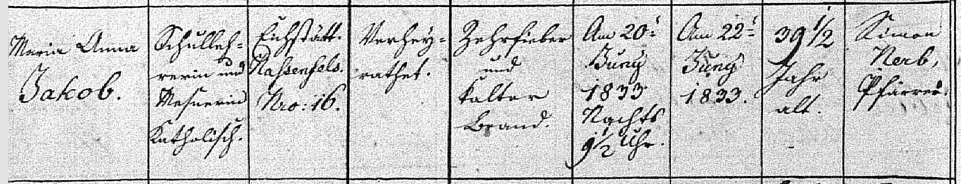 Maria Anna
Jakob.
Schulleh-
rerin und
Meßnerin
Katholisch.
Eichstätt.
Nassenfels.
Nro: 16.
Verhey-
rathet.
Zehrfieber
und
kalter
Brand.
Am 20t
Juny
1833
Nachts
9 1/2 Uhr.
Am 22t
Juny
1833.
39 1/2
Jahr
alt.
Simon
Nerb,
Pfarrer